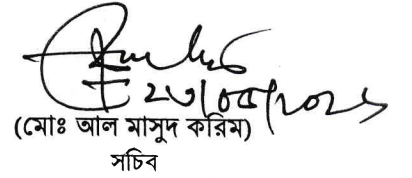 ২৩/০৫/২০২১
(মোঃ আল মাসুদ করিম)
সচিব